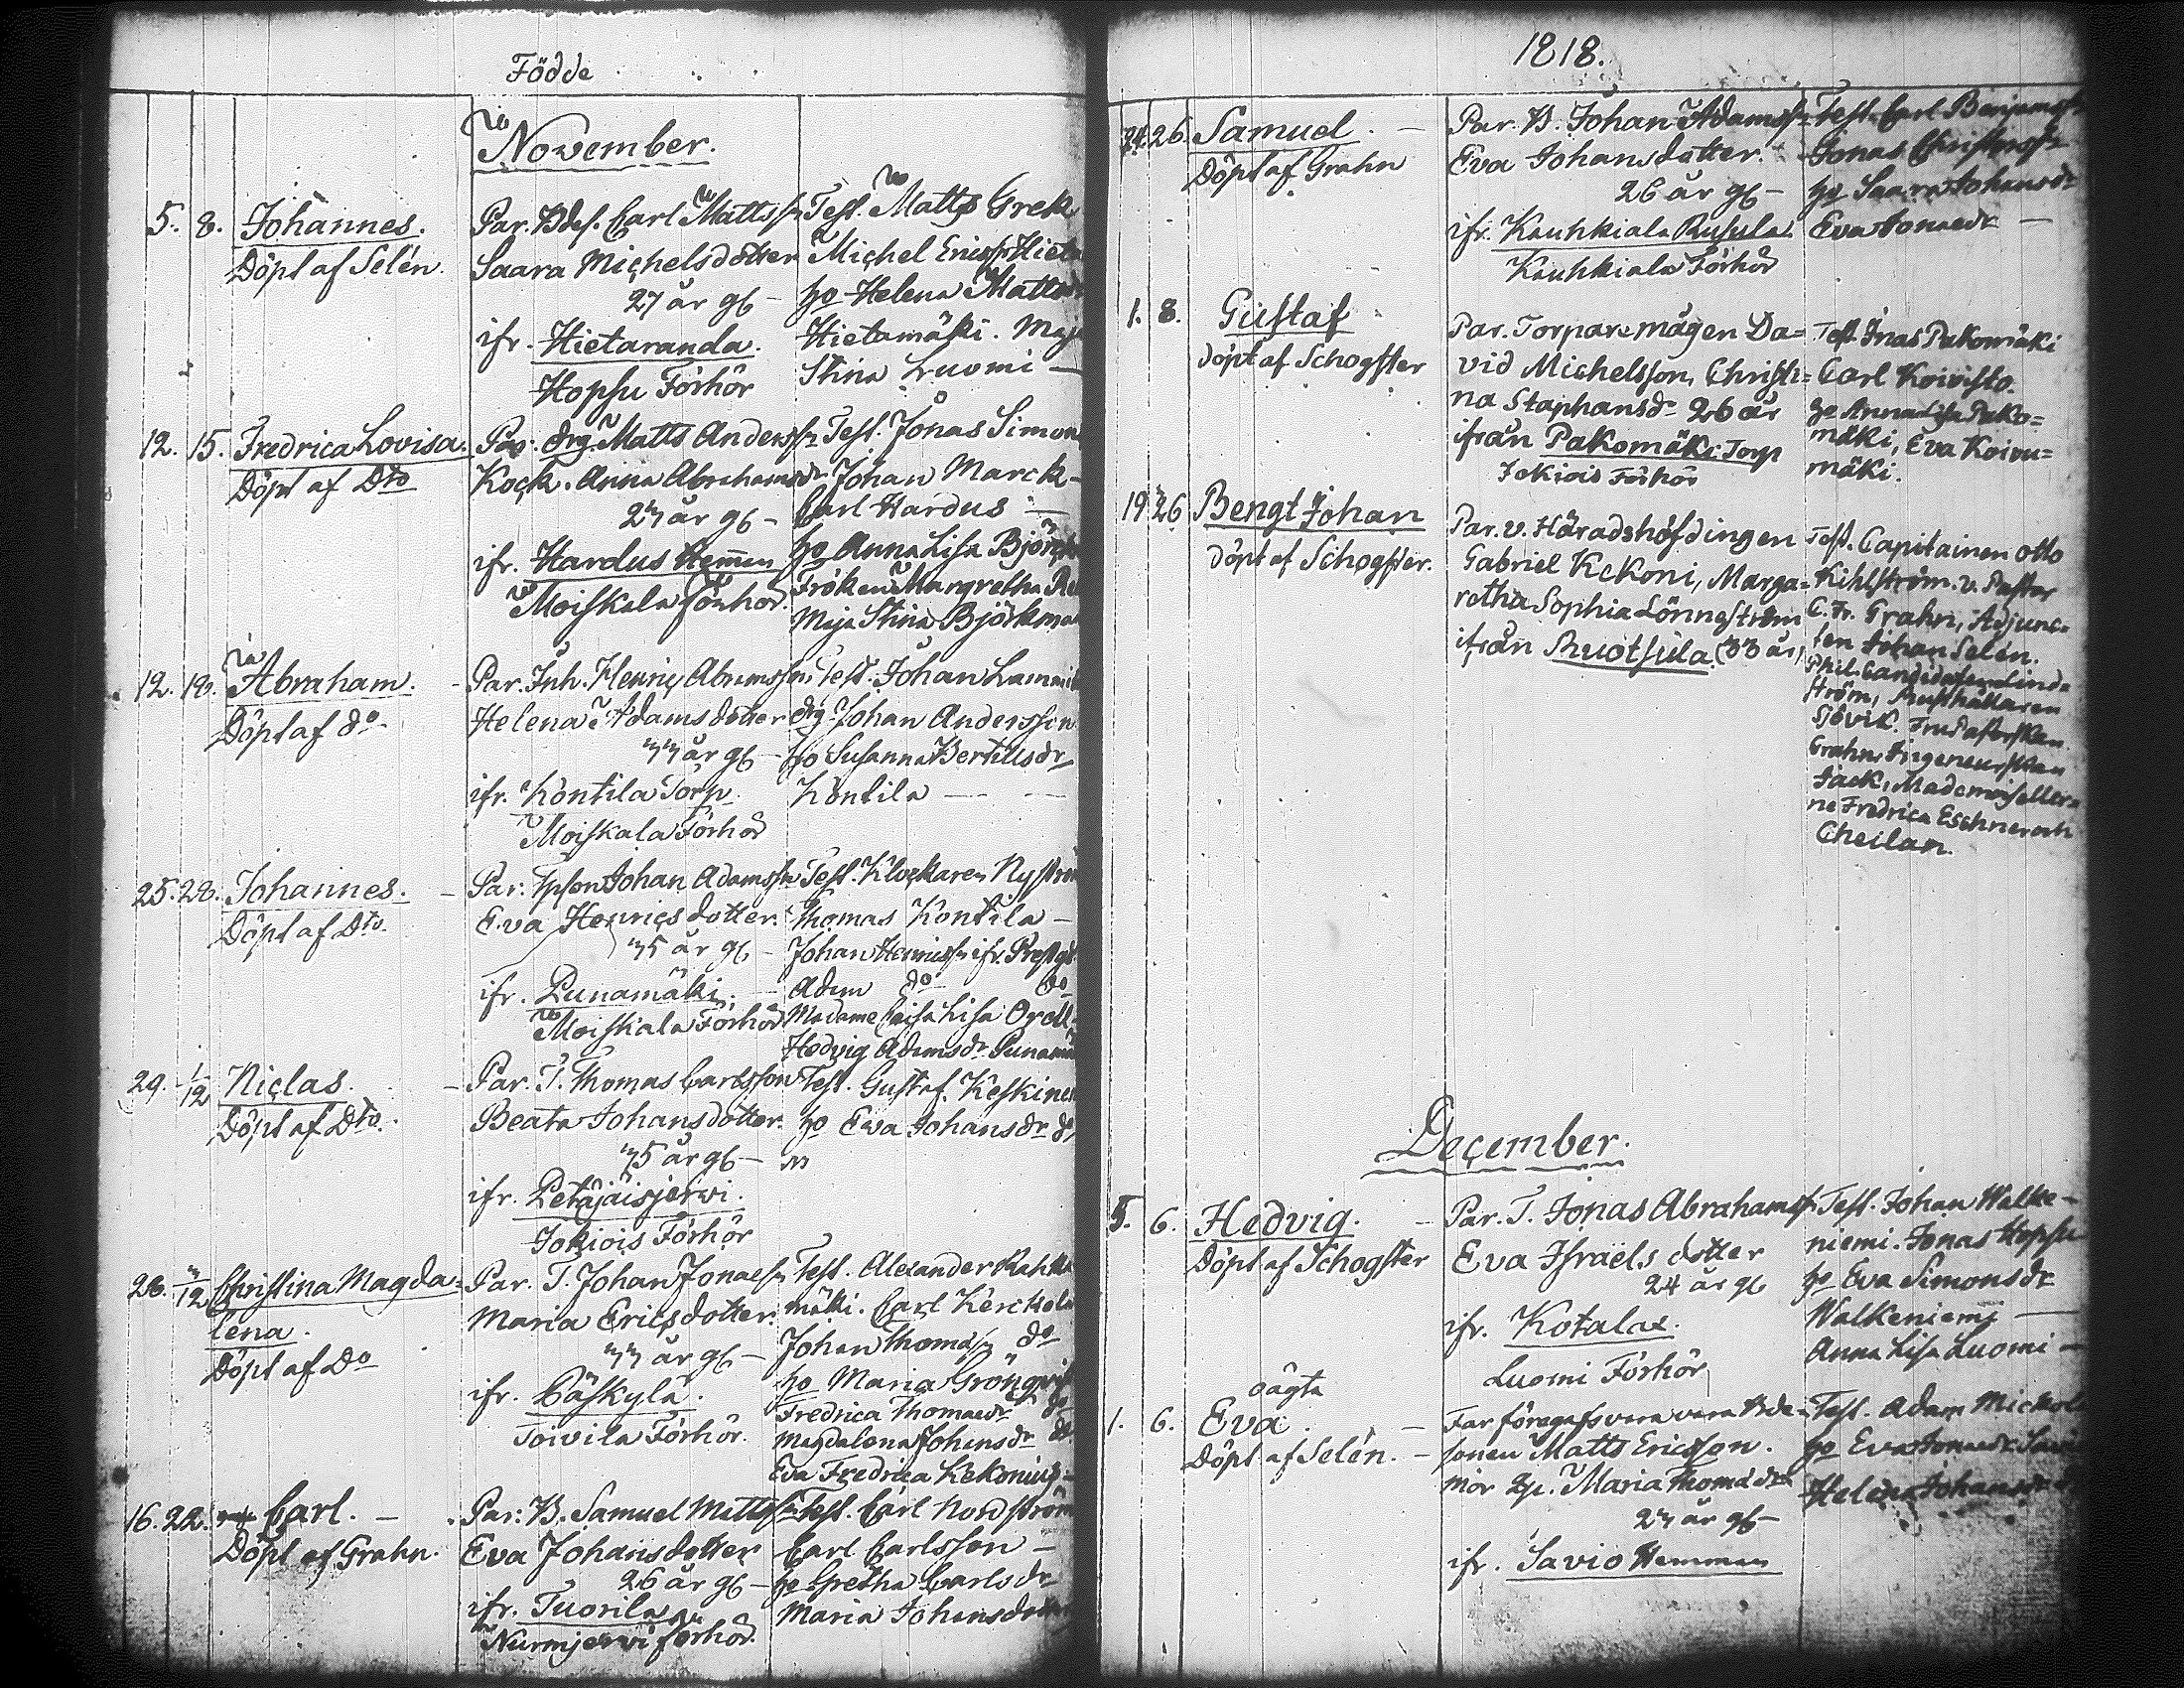 Födde
November.
5. 8. Johannes.
Döpt af Selén.
Par. Bdes. Carl Mattss:n
Saara Michelsdotter
27 år gl. -
ifr. Hietaranda.
Hopsu Förhör
Test. Matts Grek
Michel Ericss:n Hieta
ho Helena Matts
Hietamäki. Maja
Stina Luomi -
12. 15. Fredrica Lovisa.
Döpt af Dto
Par. drg. Matts Anderss:n
Kock. Anna Abrahamsdr
23 år gl. -
ifr. Hardus Hemman
Moiskala förhör.
Test. Jonas Simon
Johan Marck -
Carl Hardus -
ho Anna Lisa Björk
Fröken Margretha
Maja Stina Björkman
12. 18. Abraham.
Döpt af do
Par. Inh. Henric Abramss:n
Helena Adamsdotter
33 år gl. -
ifr. Kontila Torp.
Moiskala Förhör
Test. Johan Lammi
drg. Johan Andersson
ho Susanna Bertilsdr
Kontila -
25. 28. Johannes.
Döpt af Dto.
Par. Johan Adamss:n
Eva Henricsdotter.
35 år gl. -
ifr. Punamäki.
Moiskala Förhör
Test. Klockaren Nyström
Thomas Kontila -
Johan Henricss:n ifr. Prestg
Adam do do
Madame Caisa Lisa Orell
Hedvig Adamsdr Punamä
29. 1/12 Niclas.
Döpt af Dto.
Par. T. Thomas Carlsson
Beata Johansdotter.
35 år gl. -
ifr. Petäjäisjerwi.
Jokiois Förhör
Test. Gustaf Keskinen
ho Eva Johansdr do
28. 3/12 Christina Magda=
lena.
Döpt af Do
Par. T. Johan Jonass:n
Maria Ericsdotter.
33 år gl. -
ifr. Päskylä.
Toivila Förhör.
Test. Alexander Rahko
mäki. Carl Kerckola
Johan Thomass:n do
ho Maria Grönqvist
Fredrica Thomaedr do
Magdalena Johansdr do
Eva Fredrica Kekonius -
16. 22. Carl. -
Döpt af Grahn.
Par: B. Samuel Mattss:n
Eva Johansdotter
26 år gl. -
ifr. Tuorila
Nurmjerwi förhör.
Test. Carl Nordström
Carl Carlsson -
ho Gretha Carlsdr
Maria Johansdr
1818.
24. 26. Samuel. -
Döpt af Grahn
Par. B. Johan Adamss:n
Eva Johansdotter.
26 år gl. -
ifr. Kauhkiala Rusula
Kauhkiala Förhör
Test. Carl Benjamss:n
Jonas Christerss:n
ho Saara Johansdr
Eva Jonaedr -
1. 8. Gustaf
döpt af Schogster
Par. Torparemågen Da=
vid Michelsson, Christi=
na Staphansdr 26 år
ifrån Pakomäki Torp
Jokiois Förhör
Test. Jnas Pakomäki
Carl Koivisto.
ho Anna Lisa Pako=
mäki, Eva Koivu=
mäki.
19 26 Bengt Johan
döpt af Schogster.
Par. v. Häradshöfdingen
Gabriel Kekoni, Marga=
retha Sophia Lönneström
ifrån Ruotsula. (33 år)
Test. Capitainen Otto
Kihlström. v. Pastor
C. Fr. Grahn, Adjunc=
ten Johan Selén.
Phil. Candidaten Lind=
ström, Rusthållaren
Sjövik. Fru Pastorskan
Grahn, Ingeneurskan
Jack, Mademoiseller=
ne Fredrica Eschner och
Cheilan.
December.
5. 6. Hedvig. -
Döpt af Schogster
Par. T. Jonas Abrahamss:n
Eva Israelsdotter
24 år gl.
ifr. Kotalax.
Luomi Förhör
Test. Johan Walke-
niemi. Jonas Hopsu
ho Eva Simonsdr
Walkeniemi -
Anna Lisa Luomi -
oägta
1. 6. Eva. -
Döpt af Selén. -
Far föregafs vara Bde-
sonen Matts Ericsson.
mor Maria Thomaedr
23 år gl. -
ifr. Savio Hemman
Test. Adam Mickola
ho Eva Jonaedr Savi
Helena Johansdr